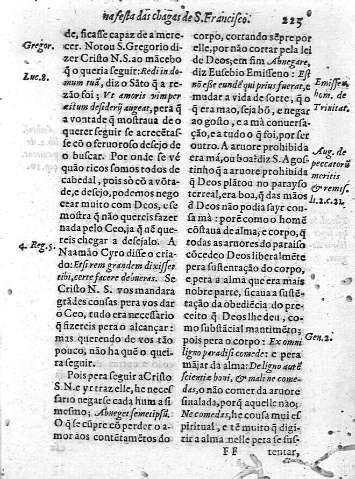 na festa das chagas de S. Francisco.
223
de, ficasse capaz de a mere-
cer. Notou S. Gregorio di-
zer Christo N. S. ao mãcebo
q̃ o queria seguir: Redi in do-
mum tuã, diz o Sãto q̃ a re-
zão foi; Ut amoris imper-
æstum desiderij augeat, pera q̃
a vontade q̃ mostraua de o
querer seguir se acrecẽtas-
se cõ o feruoroso desejo de
o buscar. Por onde se vé
quão ricos somos todos de
cabedal, pois sò cõ a võta-
de, e desejo, podemos nego
cear muito com Deos, e se
mostra q̃ não quereis fazer
nada pelo Ceo, ja q̃ nẽ que-
reis chegar a desejalo. A
Naamão Cyro disse o cria-
do: Et si rem grandem dixisset
tibi, certe facere debueras. Se
Cristo N. S. vos mandara
grãdes cousas pera vos dar
o Ceo, tudo era necessario
q̃ fizereis pera o alcançar:
mas querendo de vos tão
pouco, não ha quẽ o quei-
ra seguir.
Pois pera seguir a Cristo
S. N. e yr traz elle, he neces
sario negarse cada hum a si
mesmo; Abneget semetipsũ.
O q̃ se cũpre cõ perder o a-
mor aos contẽtamẽtos do
Gregor.
Luc. 8.
4. Reg. 5.
corpo, cortando sẽpre por
elle, por não cortar pela lei
de Deos; em sim Abnegare,
diz Eusebio Emisseno: Est
nõ esse eundẽ qui prius fuerat, e
mudar a vida de sorte, q̃ o
q̃ era mao, seja bõ, e negar
ao gosto, e a mà conuersa-
ção, e a tudo o q̃ foi, por ser
outro. A aruore prohibida
era má, ou boa? diz S. Agos-
tinho q̃ a aruore prohibida
q̃ Deos plãtou no parayso
terreal, era boa, q̃ das mãos
ď Deos não podia sayr cou-
sa má: porẽ como o homẽ
cõstaua de alma, e corpo, q̃
todas as arvores do paraiso
cõcedeo Deos liberalmẽte
pera sustentação do corpo,
e pera a alma que era mais
nobre parte, ficaua a sustẽ-
tação da obediẽcia do pre-
ceito q̃ Deos lhe deu, co-
mo substãcial mantimẽto;
pois pera o corpo: Ex omni
ligno paradisi comede: e pera
mãjar da alma: De ligno autẽ
scientiæ boni, & mali ne come-
das, o não comer da aruore
sinalada, porq̃ aquelle não;
Ne comedas, he cousa mui es
piritual, e tẽ muito q̃ digi-
rir a alma nelle pera se sus-
Emissen.
hom. de
Trinitat.
Aug. de
peccatorũ
meritis
& remiss.
li. 2. c. 21.
Gen. 2.
FF
tentar,